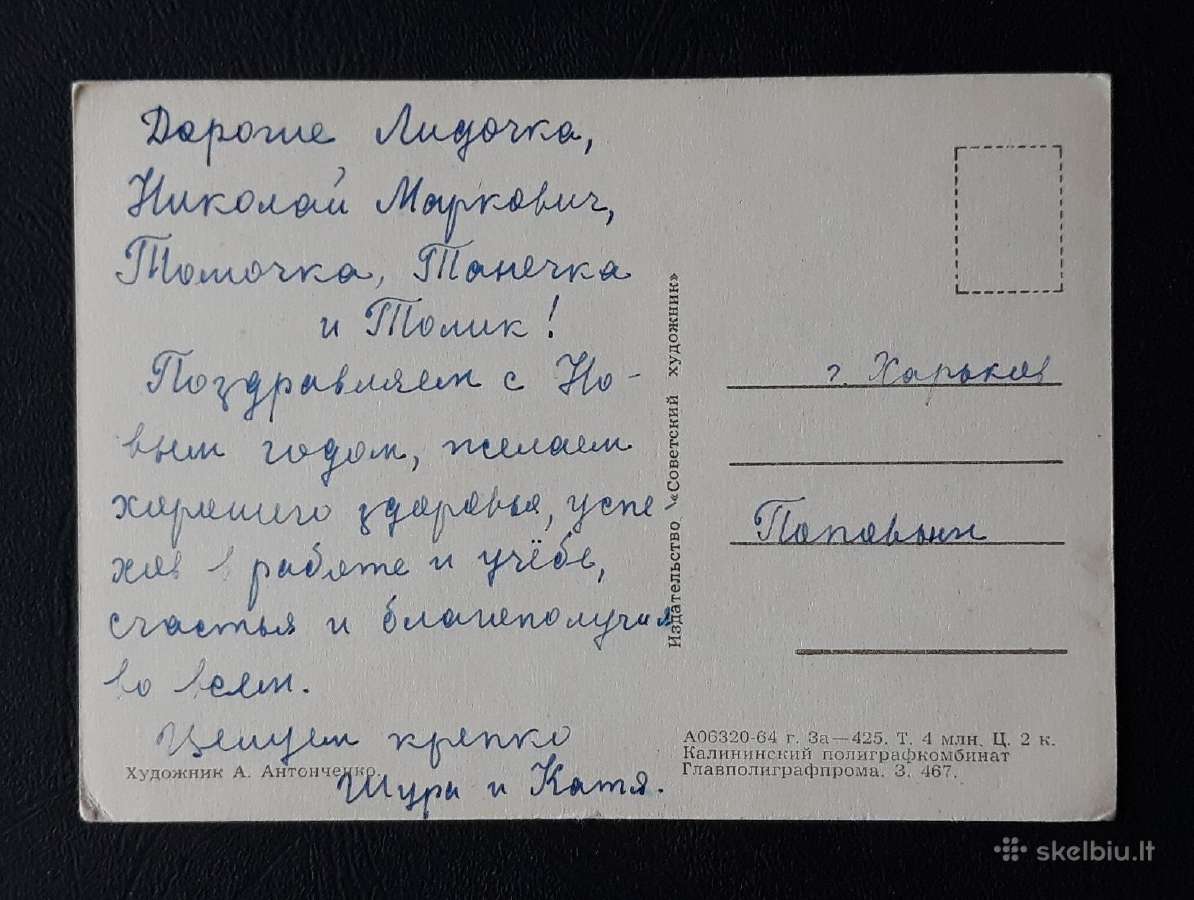 Дорогие Лидочка,
Николай Маркович,
Томочка, Танечка
и Толик!
Поздравляем с Но-
вым годом, желаем
хорошего здоровья, успе-
хов в работе и учёбе,
счастья и благополучия
во всем.
Целуем крепко
Шура и Катя.
Художник А. Антонченко.
Издательство «Советский художник»
г. Харьков
Поповым
А06320-64 г. За—425. Т. 4 млн. Ц. 2 к.
Калининский полиграфкомбинат
Главполиграфпрома. З. 467.
skelbiu.lt